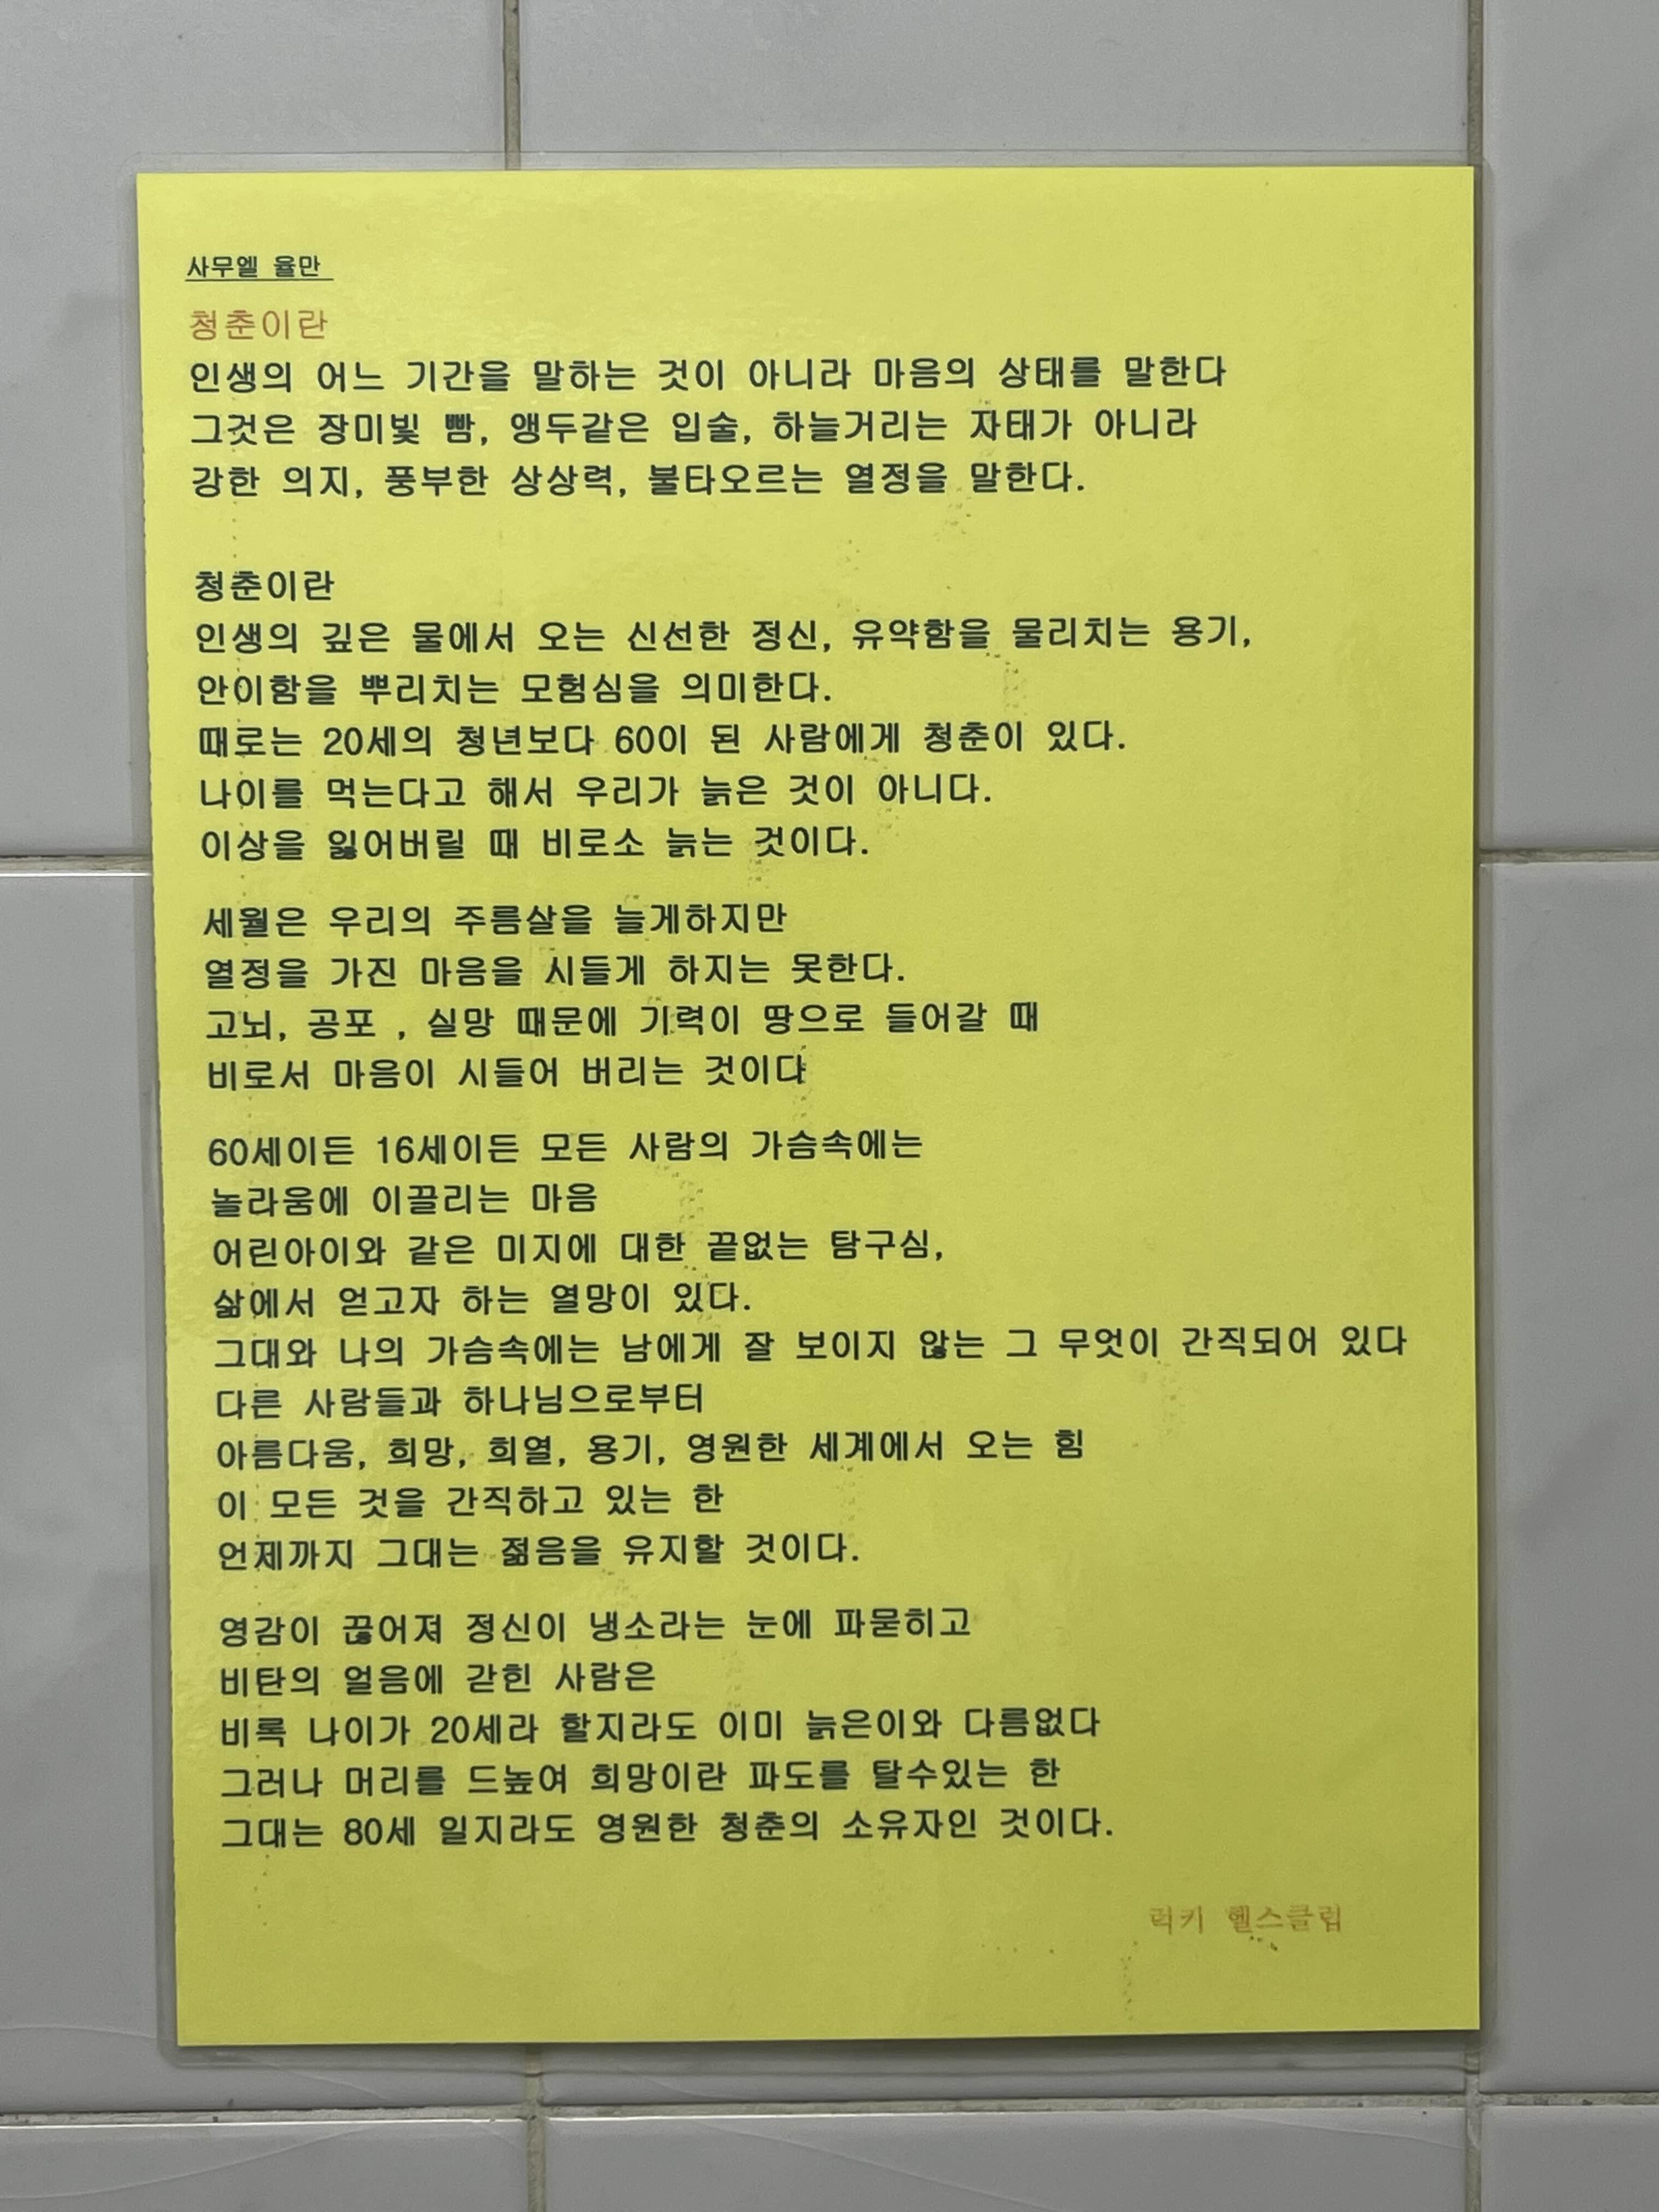 사무엘 율만
청춘이란
인생의 어느 기간을 말하는 것이 아니라 마음의 상태를 말한다
그것은 장미빛 빰, 앵두같은 입술, 하늘거리는 자태가 아니라
강한 의지, 풍부한 상상력, 불타오르는 열정을 말한다.
청춘이란
인생의 깊은 물에서 오는 신선한 정신, 유약함을 물리치는 용기,
안이함을 뿌리치는 모험심을 의미한다.
때로는 20세의 청년보다 60이 된 사람에게 청춘이 있다.
나이를 먹는다고 해서 우리가 늙은 것이 아니다.
이상을 잃어버릴 때 비로소 늙는 것이다.
세월은 우리의 주름살을 늘게하지만
열정을 가진 마음을 시들게 하지는 못한다.
고뇌, 공포 , 실망 때문에 기력이 땅으로 들어갈 때
비로서 마음이 시들어 버리는 것이다
60세이든 16세이든 모든 사람의 가슴속에는
놀라움에 이끌리는 마음
어린아이와 같은 미지에 대한 끝없는 탐구심,
삶에서 얻고자 하는 열망이 있다.
그대와 나의 가슴속에는 남에게 잘 보이지 않는 그 무엇이 간직되어 있다
다른 사람들과 하나님으로부터
아름다움, 희망, 희열, 용기, 영원한 세계에서 오는 힘
이 모든 것을 간직하고 있는 한
언제까지 그대는 젊음을 유지할 것이다.
영감이 끊어져 정신이 냉소라는 눈에 파묻히고
비탄의 얼음에 갇힌 사람은
비록 나이가 20세라 할지라도 이미 늙은이와 다름없다
그러나 머리를 드높여 희망이란 파도를 탈수있는 한
그대는 80세 일지라도 영원한 청춘의 소유자인 것이다.
럭키 헬스클럽